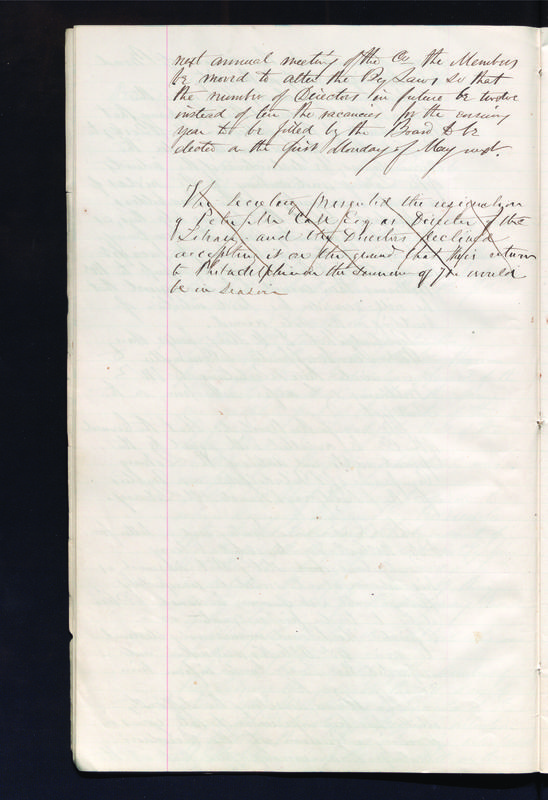 next annual meeting of the Co the Members
be moved to alter the By Laws so that
the number of Directors in future be twelve
instead of ten the vacancies for the ensuing
year to be filled by the Board & be
elected on the first Monday of May next.
The Secretary presented the resignation
of Peter McCall Esq as Director of the
Library and the Directors declined
accepting it on the ground that his return
to Philadelphia in the summer of 72 would
be in season